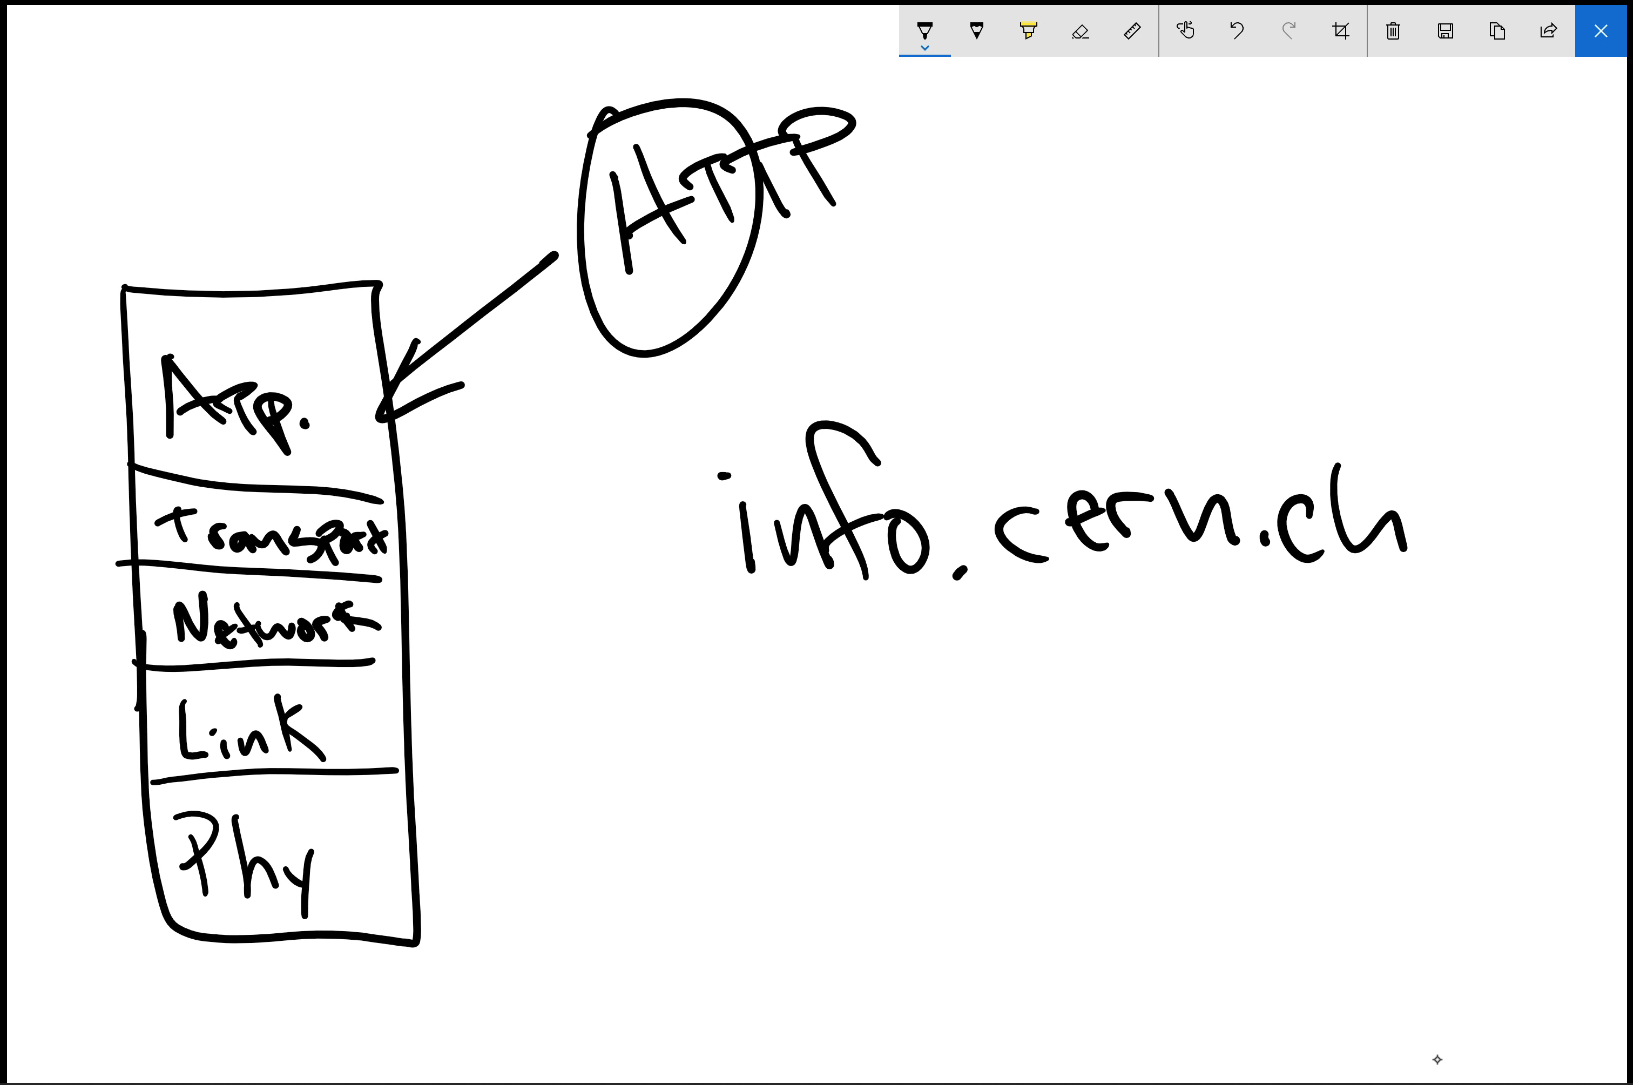 HTTP
App.
Transport
Network
Link
Phy
info.cern.ch